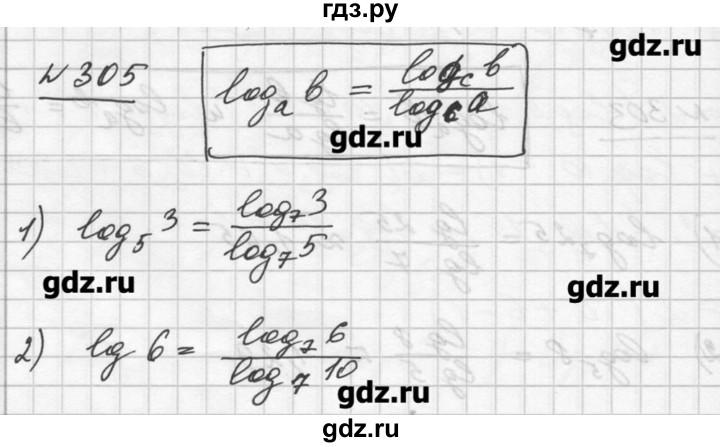 гдз.ру
gdz.ru
№305
log_a b = log_c b / log_c a
gdz.ru
1) log_5 3 = log_7 3 / log_7 5
gdz.ru
gdz.ru
2) lg 6 = log_7 6 / log_7 10
gdz.ru
gdz.ru